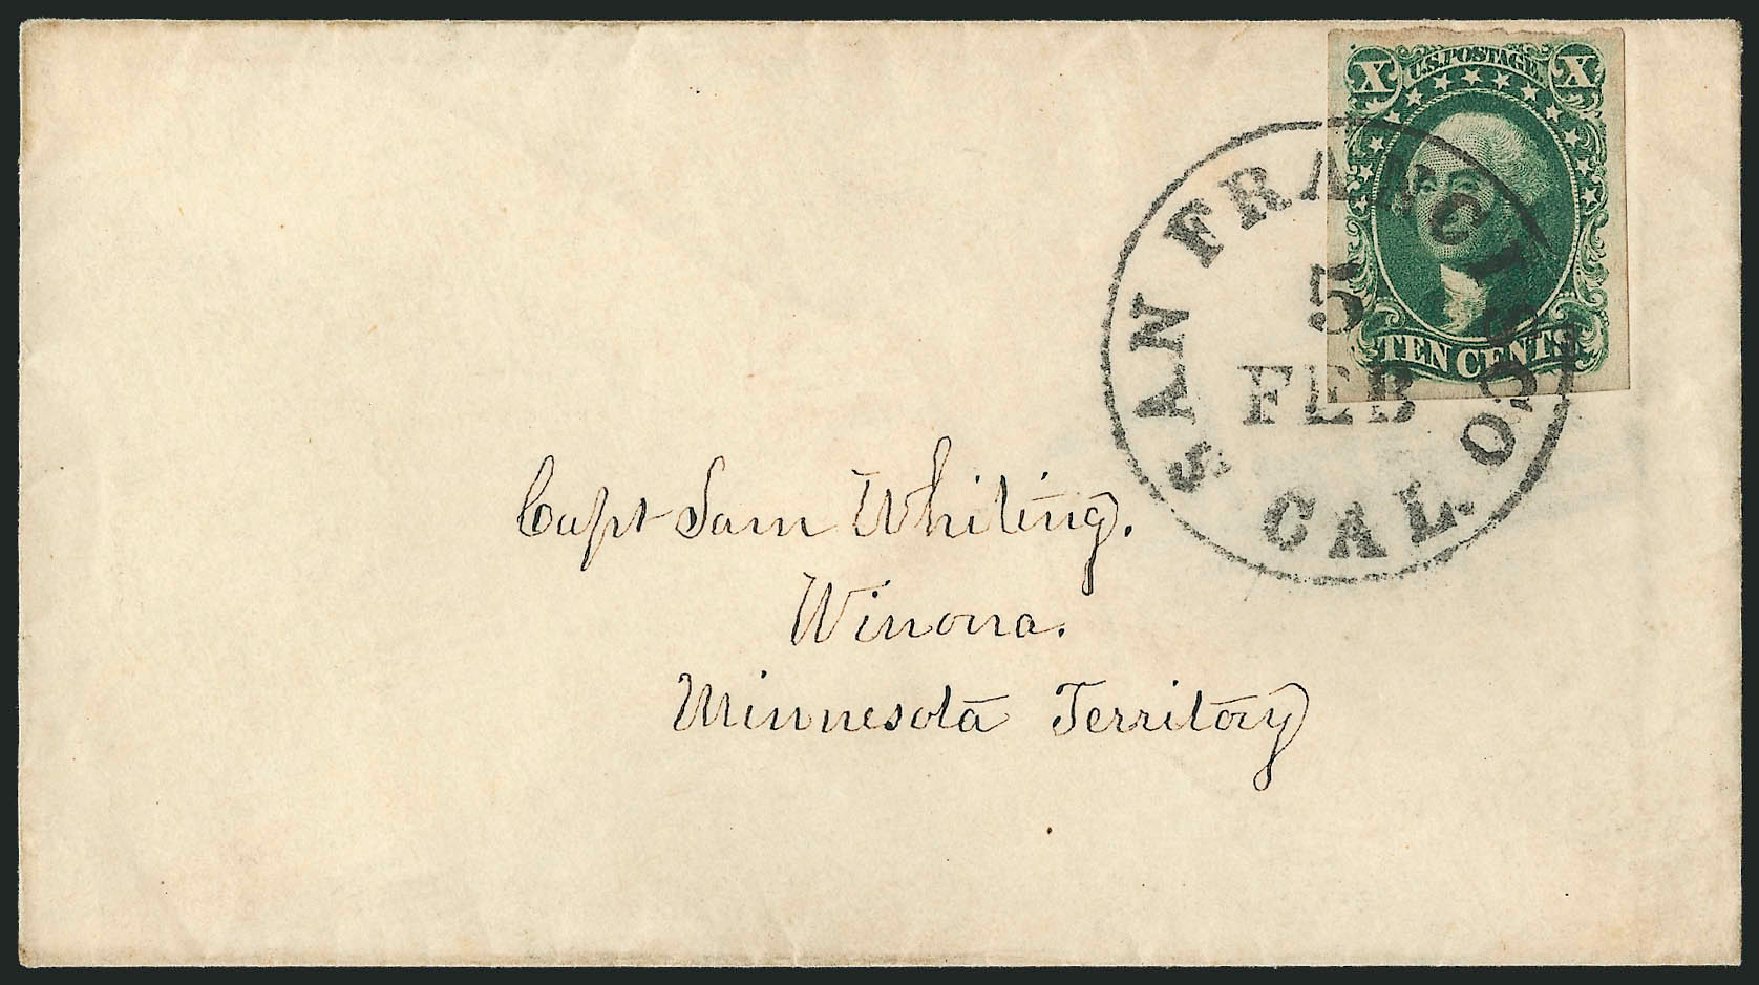 X U.S. POSTAGE X
TEN CENTS
SAN FRANCISCO
5
FEB
CAL.
Capt Sam Whiting.
Winona.
Minnesota Territory